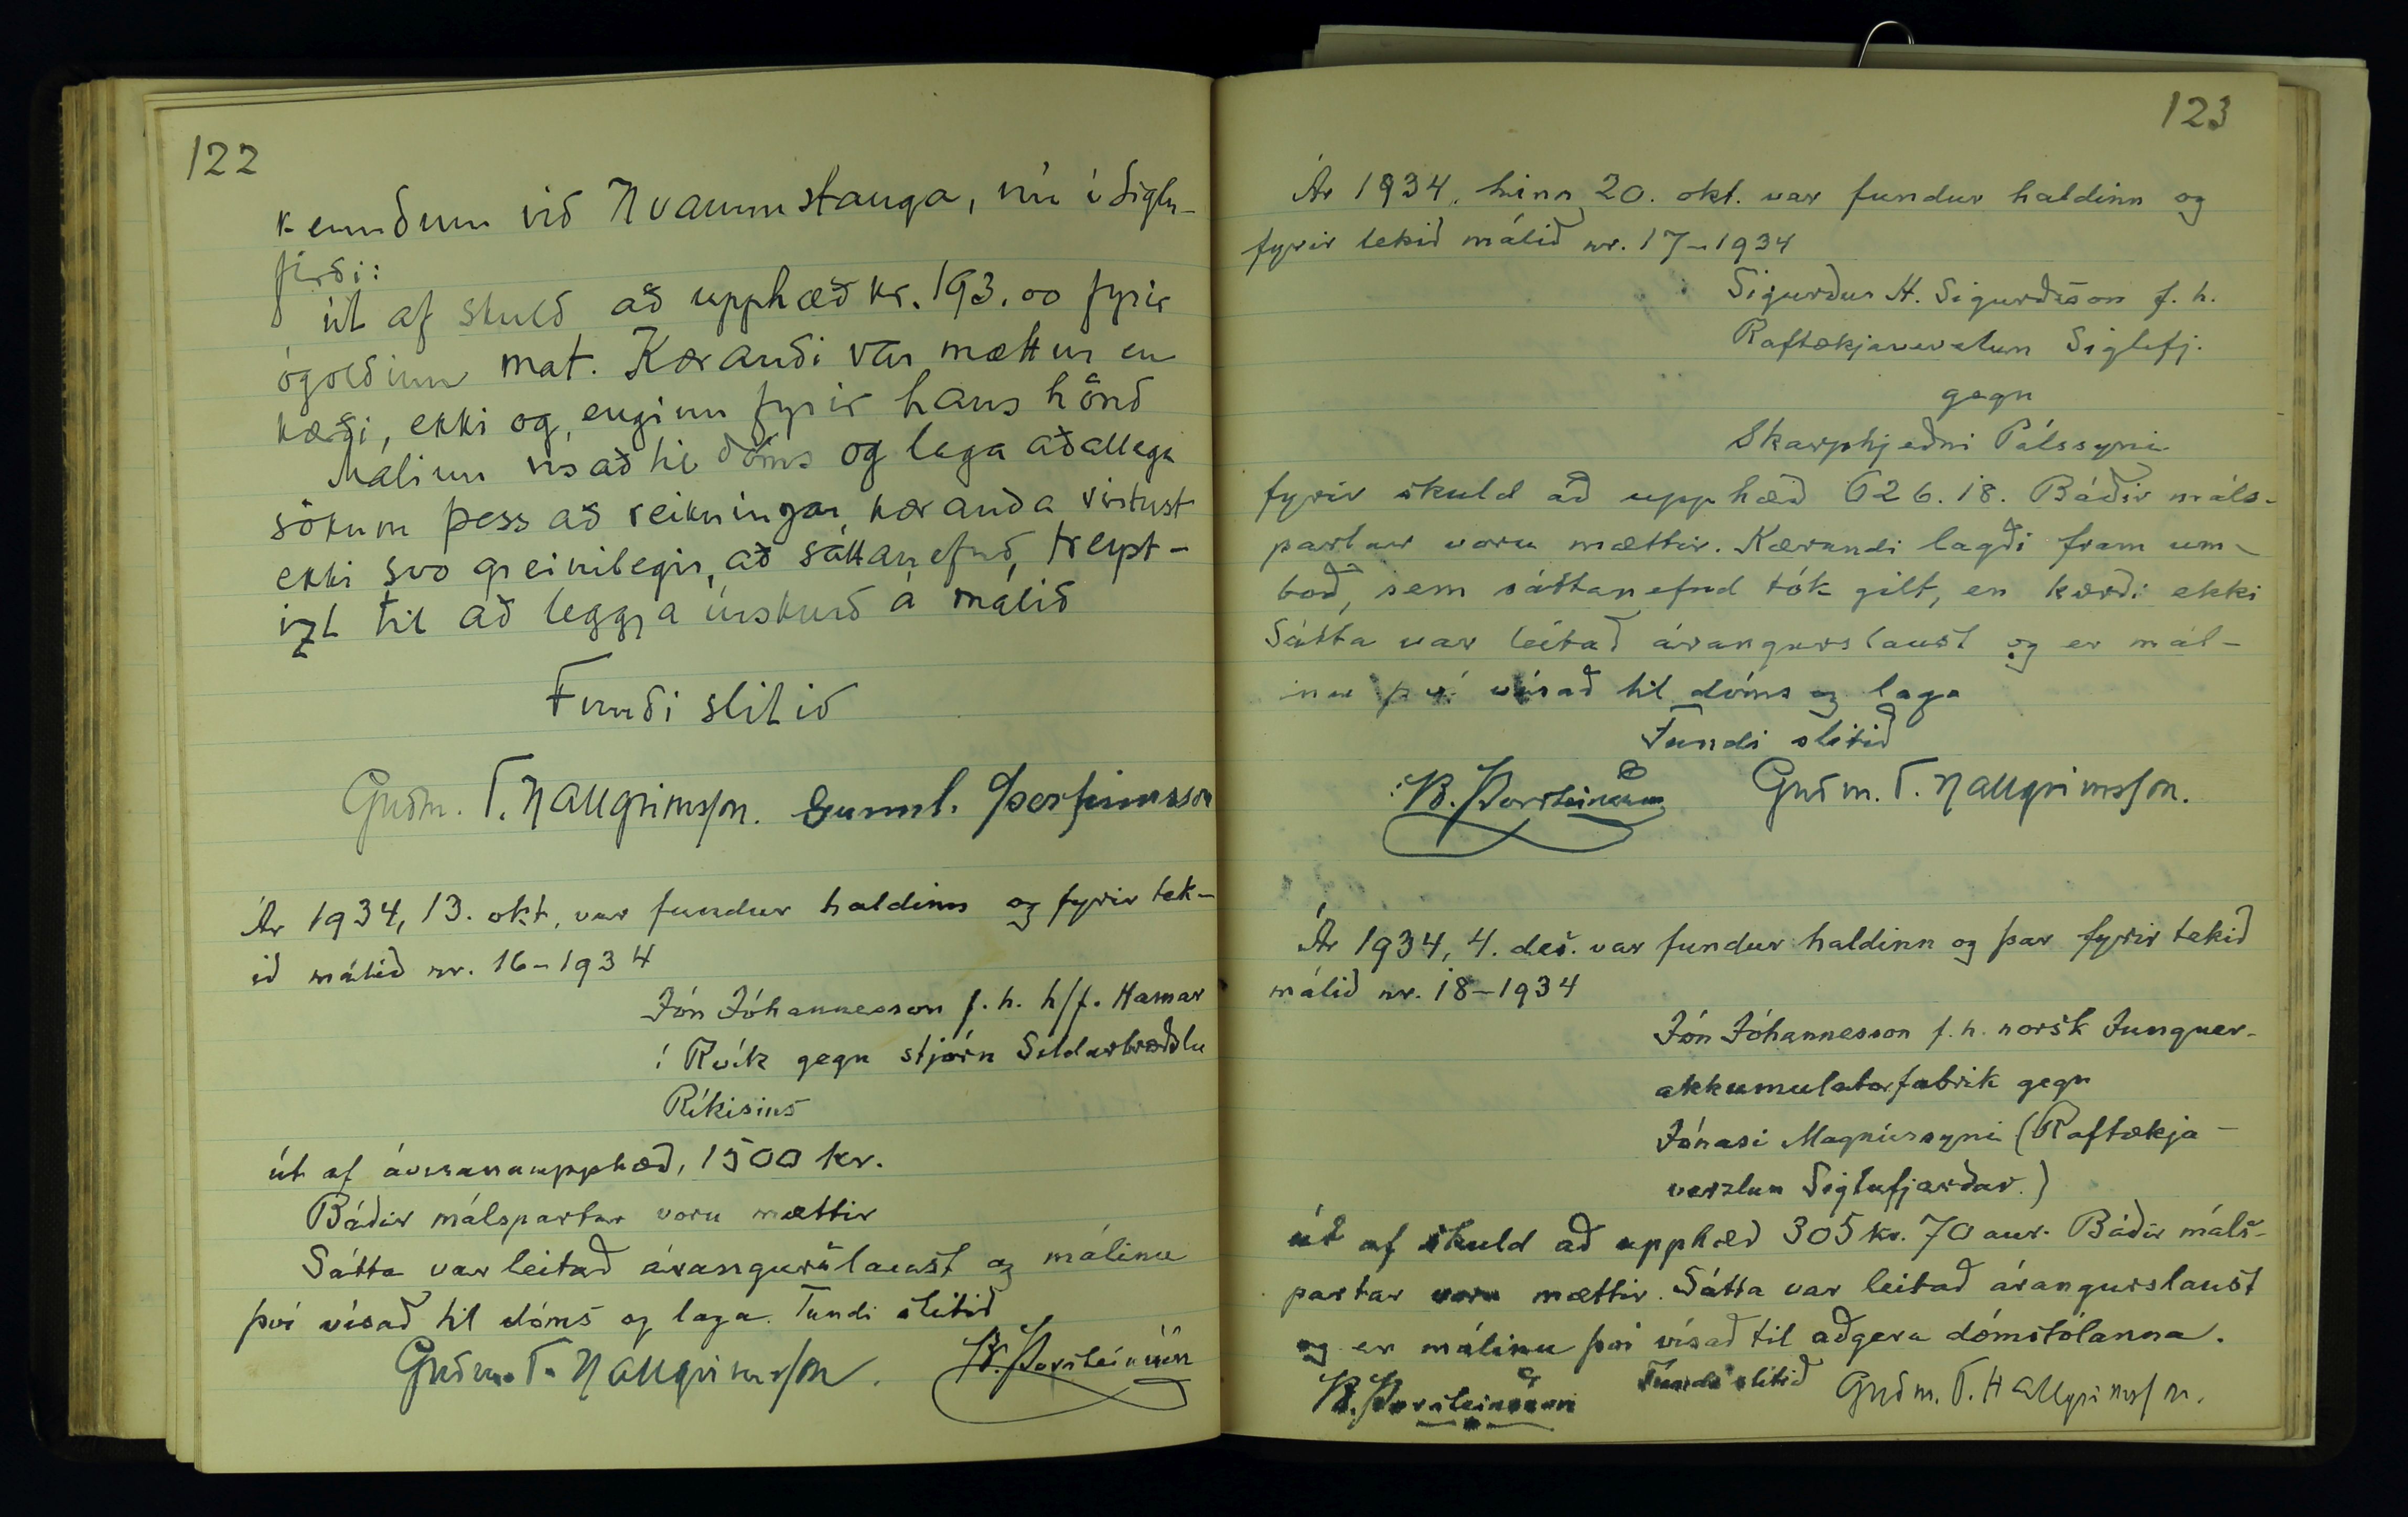 122
kenndum við Hvammstanga, nú í Siglu-
firði:
út af skuld að upphæð kr. 193.00 fyrir
ógoldinn mat. Kærandi var mættur en
kærði, ekki og, enginn fyrir hans hönd
Málinu vísað til dóms og laga aðallega
sökum þess að reikningar kæranda virtust
ekki svo greinilegir, að sáttanefnd, treyst-
izt til að leggja úrskurð á málið
Fundi slitið
Guðm. T. Hallgrimsson. Gunnl. Þorfinnsson
Ár 1934, 13. okt. var fundur haldinn og fyrir tek-
ið málið nr. 16-1934
Jón Jóhannesson f. h. h/f. Hamar
í Rvík gegn stjórn Síldarbræðslu
Ríkisins
út af ávísanaupphæð, 1500 kr.
Báðir málspartar voru mættir
Sátta var leitað árangurslaust og málinu
því vísað til dóms og laga. Fundi slitið
Guðm. T. Hallgrimsson. B. Þorsteinsson
123
Ár 1934, hinn 20. okt. var fundur haldinn og
fyrir tekið málið nr. 17-1934
Sigurður H. Sigurðsson f. h.
Raftækjaverzlun Siglufj.
gegn
Skarphjeðni Pálssyni
fyrir skuld að upphæð 626.18. Báðir máls-
partar voru mættir. Kærandi lagði fram um-
boð, sem sáttanefnd tók gilt, en kærði ekki
Sátta var leitað árangurslaust og er mál-
inu því vísað til dóms og laga
Fundi slitið
B. Þorsteinsson Guðm. T. Hallgrimsson.
Ár 1934, 4. des. var fundur haldinn og þar fyrir tekið
málið nr. 18-1934
Jón Jóhannesson f. h. norsk Jungner-
akkumulatorfabrik gegn
Jónasi Magnússyni (Raftækja-
verzlun Siglufjarðar.)
út af skuld að upphæð 305 kr. 70 aur. Báðir máls-
partar voru mættir. Sátta var leitað árangurslaust
og er málinu því vísað til aðgera dómstólanna.
Fundi slitið
B. Þorsteinsson Guðm. T. Hallgrimsson.